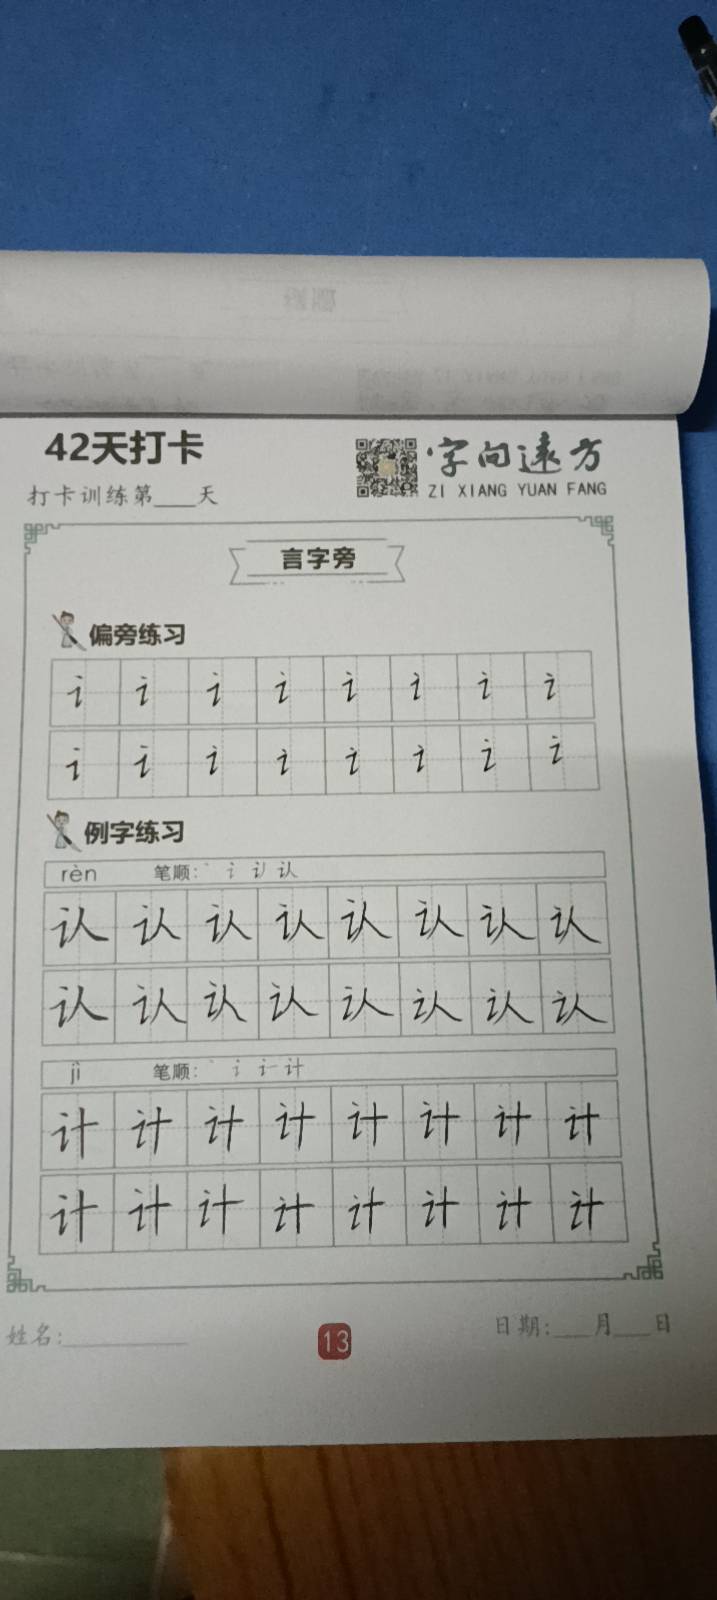 42天打卡
字向远方
打卡训练第___天
ZI XIANG YUAN FANG
言字旁
偏旁练习
讠 讠 讠 讠 讠 讠 讠 讠
讠 讠 讠 讠 讠 讠 讠 讠
例字练习
rèn 笔顺: 丶 讠 认 认
认 认 认 认 认 认 认 认
认 认 认 认 认 认 认 认
jì 笔顺: 丶 讠 计 计
计 计 计 计 计 计 计 计
计 计 计 计 计 计 计 计
姓名:__________ 13 日期:___月___日